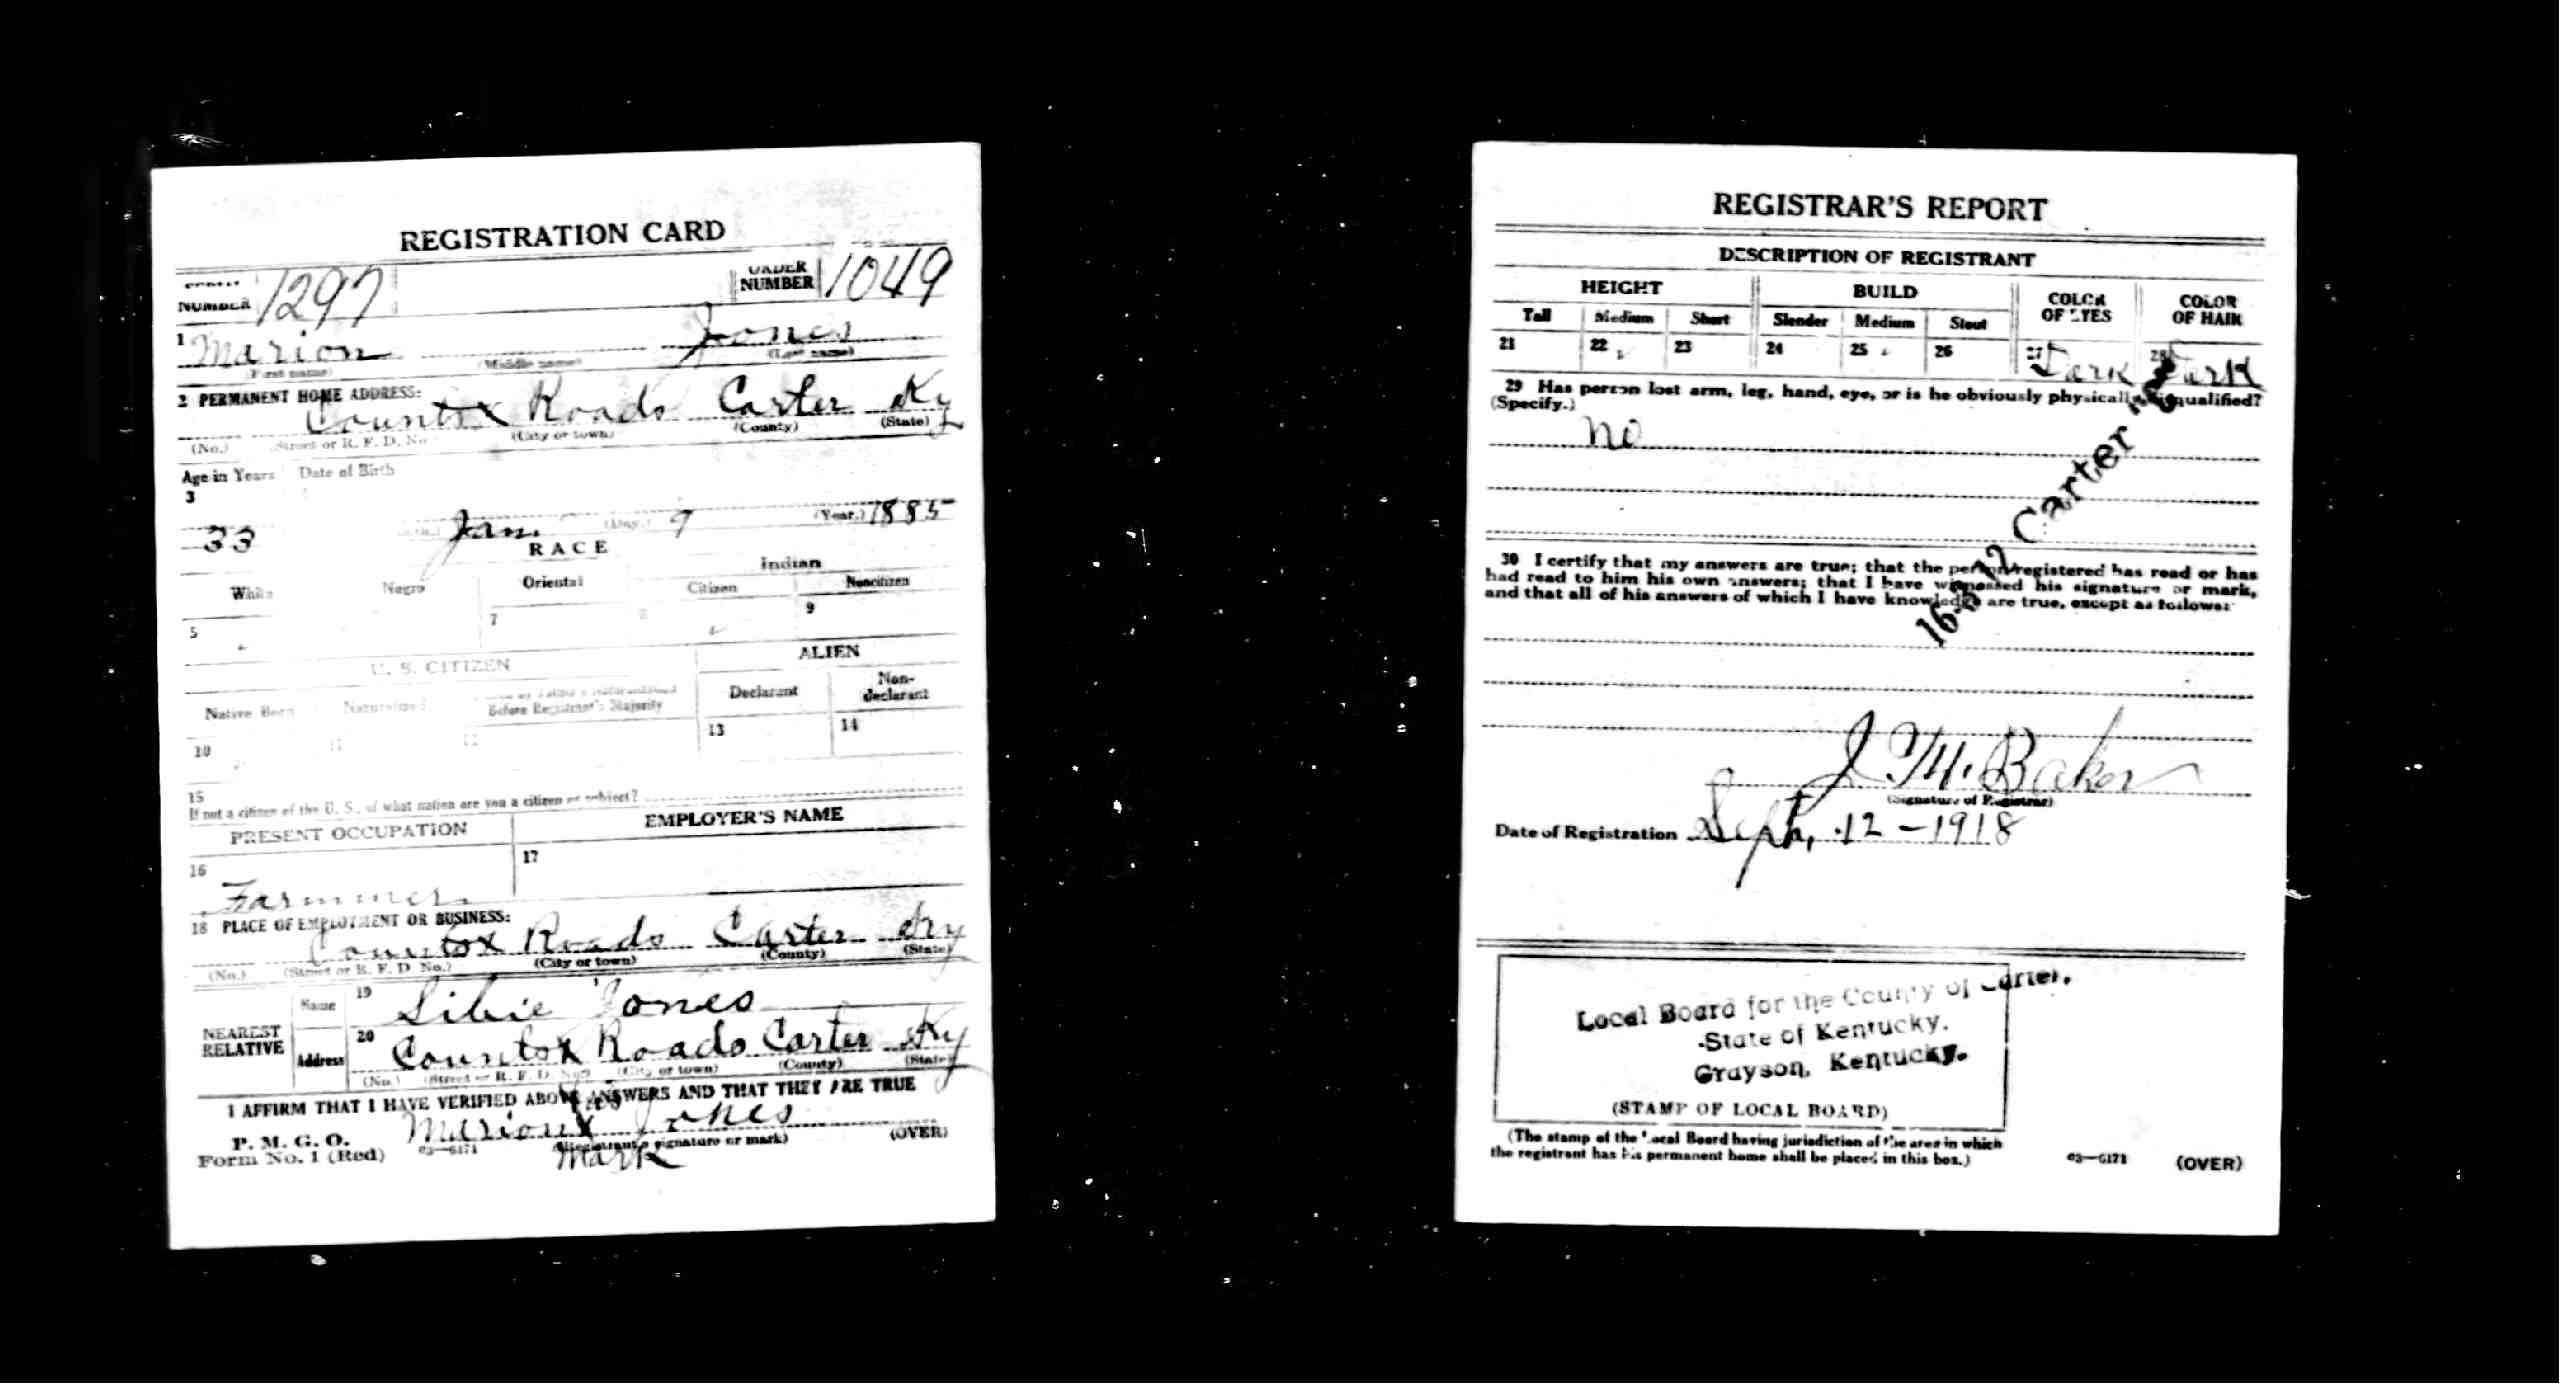 REGISTRATION CARD
NUMBER 1297 ORDER NUMBER 1049
1 Marion Jones
(First name) (Middle name) (Last name)
2 PERMANENT HOME ADDRESS:
Roads Carter Ky
(No.) (Street or R. F. D. No.) (City or town) (County) (State)
Age in Years Date of Birth
3
33 Jan. (Day.) 9 (Year.) 1885
RACE
White Negro Oriental Indian
Citizen Noncitizen
5 7 8 9
U. S. CITIZEN ALIEN
Native Born Naturalized Before Registrant's Majority Declarant Non-declarant
10 11 12 13 14
15
If not a citizen of the U. S., of what nation are you a citizen or subject?
PRESENT OCCUPATION EMPLOYER'S NAME
16 17
Farmmer
18 PLACE OF EMPLOYMENT OR BUSINESS:
Roads Carter Ky
(No.) (Street or R. F. D. No.) (City or town) (County) (State)
NEAREST RELATIVE
Name 19 Jones
Address 20 Roads Carter Ky
(No.) (Street or R. F. D. No.) (City or town) (County) (State)
I AFFIRM THAT I HAVE VERIFIED ABOVE ANSWERS AND THAT THEY ARE TRUE
his
Marion X Jones
P. M. G. O.
Form No. 1 (Red) 03—6171 (Registrant's signature or mark) (OVER)
mark
REGISTRAR'S REPORT
DESCRIPTION OF REGISTRANT
HEIGHT BUILD COLOR OF EYES COLOR OF HAIR
Tall Medium Short Slender Medium Stout
21 22 23 24 25 26 27 Dark 28 Dark
29 Has person lost arm, leg, hand, eye, or is he obviously physically disqualified?
(Specify.)
no
Carter
30 I certify that my answers are true; that the person registered has read or has
had read to him his own answers; that I have witnessed his signature or mark,
and that all of his answers of which I have knowledge are true, except as follows:
J. M. Baker
(Signature of Registrar)
Date of Registration Sept, 12 - 1918
Local Board for the County of Carter,
State of Kentucky.
Grayson, Kentucky.
(STAMP OF LOCAL BOARD)
(The stamp of the Local Board having jurisdiction of the area in which
the registrant has his permanent home shall be placed in this box.)
03—6171 (OVER)